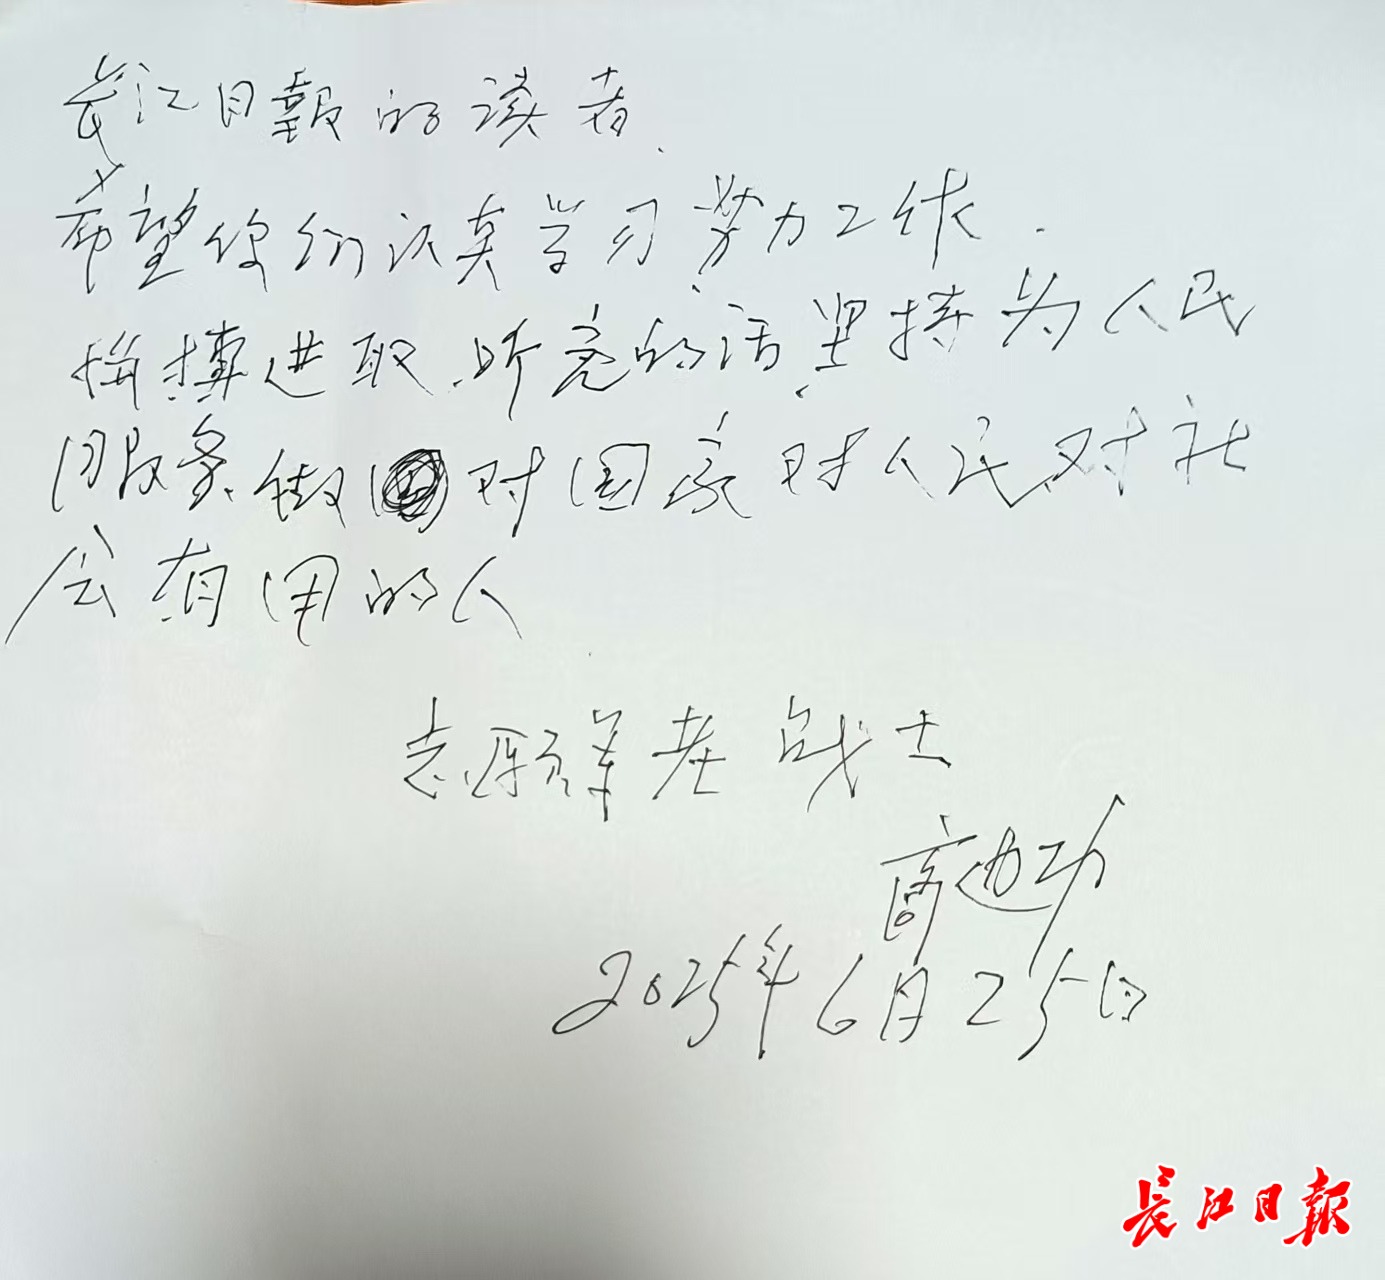 长江日報的读者
希望你们认真学习努力工作.
拚搏进取.听党的话.坚持为人民
服务.做对国家对人民对社
会有用的人
志愿军老战士
高边功
2025年6月25日
长江日报